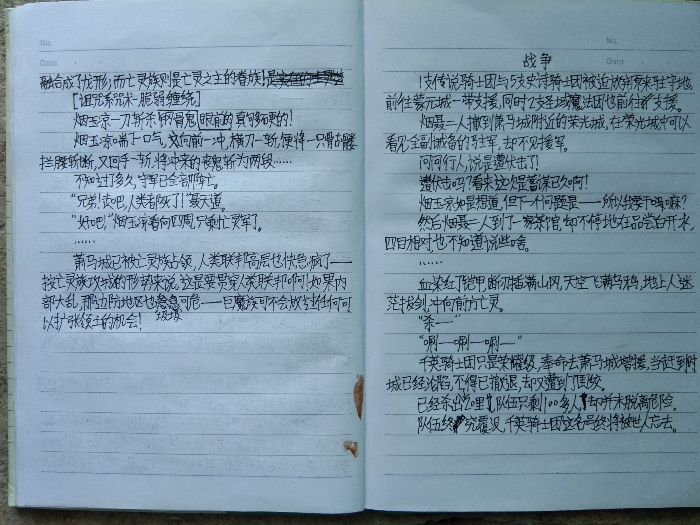 No.
Date
融合成了龙形,而亡灵族则是亡灵之主的眷族!
[诅咒系咒术·脆弱缠绕]
烟玉凉一刀斩杀了两骨鬼,眼前的真够硬的!
烟玉凉喘了一口气,又向前一冲,横刀一斩,便将一只骷髅
拦腰斩断,又回手一斩,将冲来的丧鬼斩为两段……
不知过了多久,守军已全部阵亡。
“兄弟!走吧,人类都死了!”聂天道。
“好吧,”烟玉凉看向四周,只剩亡灵军了。
……
萧马城已被亡灵族占领,人类联邦高层也快急疯了——
按亡灵族攻城的形势来说,这是要贯穿人类联邦啊!如果内
部大乱,那么边防地区也岌岌可危——巨魔族可不会放过任何可
以扩张领土的机会!
岌岌
No.
Date
战争
1支传说骑士团与5支史诗骑士团被迫放弃原来驻守地
前往蒙元城一带支援,同时2支圣域魔法团也前往支援。
烟聂二人撤到萧马城附近的荣光城,在荣光城中可以
看见全副城备的驻军,却不见援军。
问问行人,说是遭伏击了!
遭伏击吗?看来这次是蓄谋已久啊!
烟玉凉如是想道,但下一个问题是——所以我要干嘛嘛?
然后烟聂二人到了一家茶馆,却不停地在品尝白开水,
四目相对也不知道说些啥。
……
血染红了铠甲,断刃插满山冈,天空飞满乌鸦,地上人迷
茫拔剑,冲向前方亡灵。
“杀——”
“唰——唰——唰——”
千英骑士团只是荣耀级,奉命去萧马城增援,当赶到时
城已经沦陷,不得已撤退,却又遭到了围绞。
已经杀出20里了,队伍只剩100多人,却并未脱离危险。
队伍终究覆没,千英骑士团这名号终将被世人忘去。